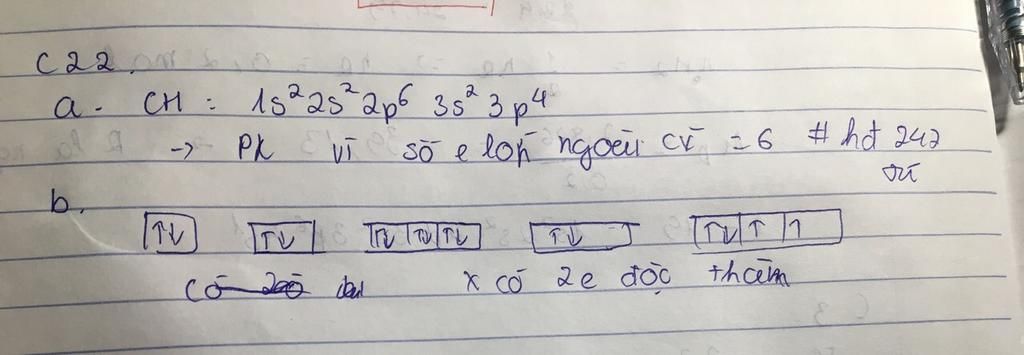 C22.
a - CH : 1s² 2s² 2p⁶ 3s² 3p⁴
→ PK vì số e lớp ngoài cx = 6 # hđ
b.
↑↓ ↑↓ ↑↓ ↑↓ ↑↓ ↑↓ ↑↓ ↑ ↑
có x có 2e độc thân